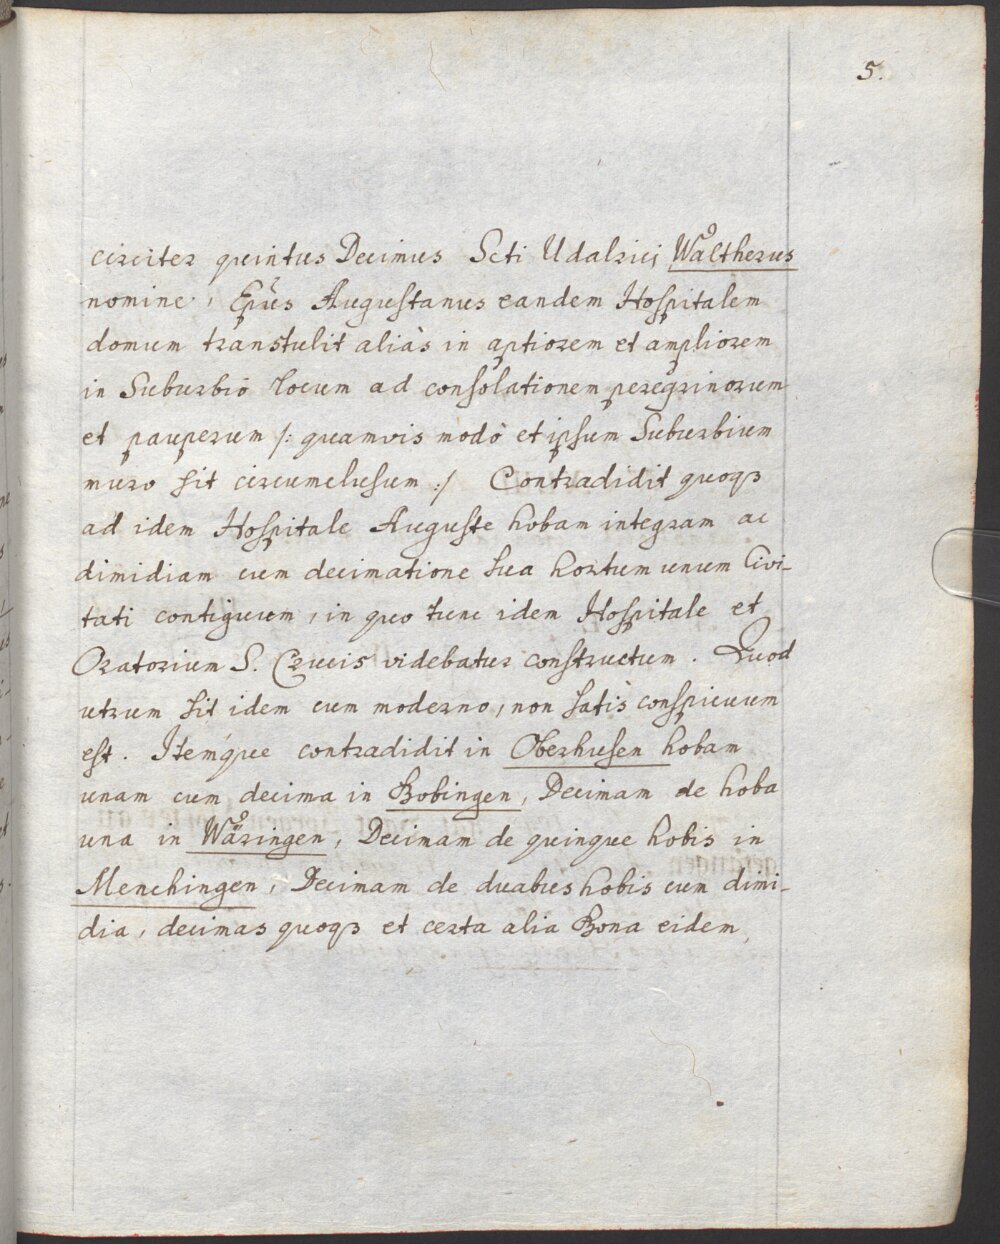 5.
circiter quintus Decimus Scti Udalrici Wåltherus
nomine, Ep̃us Augustanus eandem Hospitalem
domum transtulit aliàs in aptiorem et ampliorem
in Suburbio locum ad consolationem peregrinorum
et pauperum /: quamvis modò et ipsum Suburbium
muro sit circumclusum :/ Contradidit quoqȝ
ad idem Hospitale Auguste hobam integram ac
dimidiam cum decimatione sua hortum unum Civi-
tati contiguum, in quo tunc idem Hospitale et
Oratorium S. Crucis videbatur constructum. Quod
utrum sit idem cum moderno, non satis conspicuum
est. Itémque contradidit in Oberhusen hobam
unam cum decima in Bobingen, Decimam de hoba
una in Wåringen, Decimam de quinque hobis in
Menchingen, Decimam de duabus hobis cum dimi-
dia, decimas quoqȝ et certa alia Bona eidem